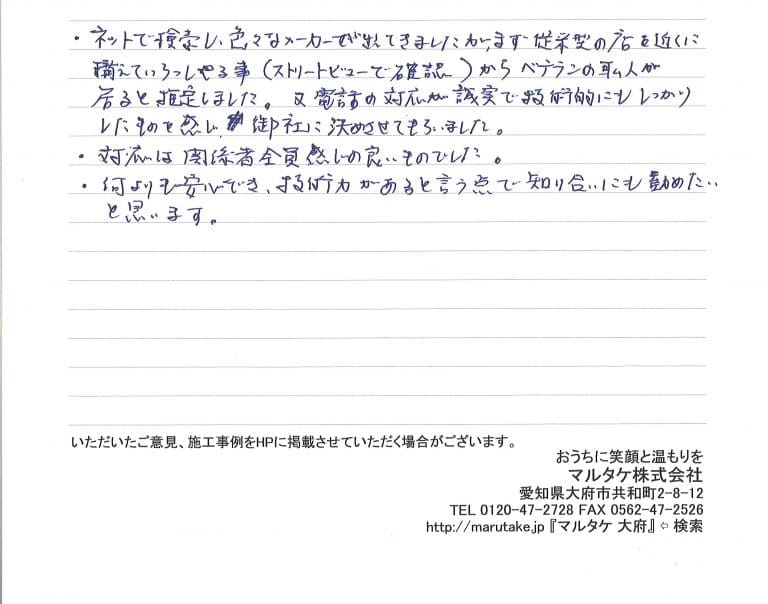 ・ネットで検索し、色々なメーカーが出てきましたが、まず従来型の店を近くに
構えていらっしゃる事（ストリートビューで確認）からベテランの職人が
居ると推定しました。又電話の対応が誠実で技術的にもしっかり
したものを感じ、御社に決めさせてもらいました。
・対応は関係者全員感じの良いものでした。
・何よりも安心でき、技術力があると言う点で知り合いにも勧めたい
と思います。
いただいたご意見、施工事例をHPに掲載させていただく場合がございます。
おうちに笑顔と温もりを
マルタケ株式会社
愛知県大府市共和町2-8-12
TEL 0120-47-2728 FAX 0562-47-2526
http://marutake.jp『マルタケ 大府』⇦ 検索